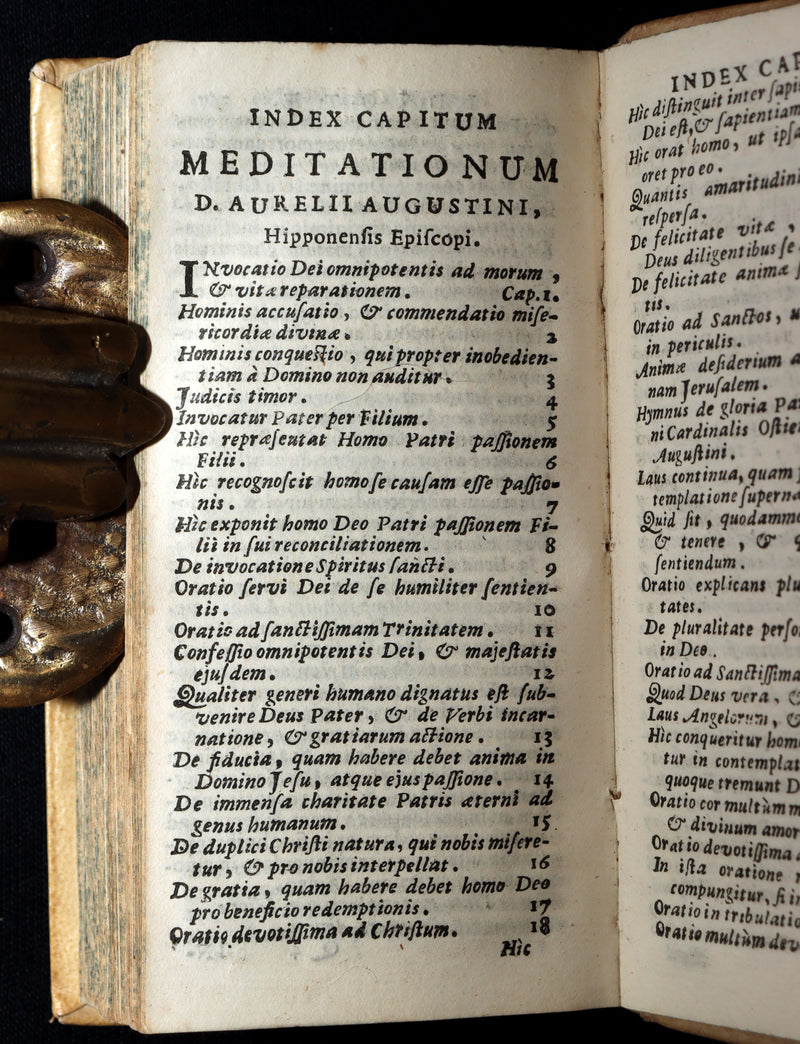 INDEX CAPITUM
MEDITATIONUM
D. AURELII AUGUSTINI,
Hipponenſis Epiſcopi.
INvocatio Dei omnipotentis ad morum,
& vitæ reparationem. Cap.1.
Hominis accuſatio, & commendatio miſe-
ricordiæ divinæ. 2
Hominis conqueſtio, qui propter inobedien-
tiam à Domino non auditur. 3
Judicis timor. 4
Invocatur Pater per Filium. 5
Hîc repræſentat Homo Patri paſſionem
Filii. 6
Hîc recognoſcit homo ſe cauſam eſſe paſſio-
nis. 7
Hîc exponit homo Deo Patri paſſionem Fi-
lii in ſui reconciliationem. 8
De invocatione Spiritus ſancti. 9
Oratio ſervi Dei de ſe humiliter ſentien-
tis. 10
Oratio ad ſanctiſſimam Trinitatem. 11
Confeſſio omnipotentis Dei, & majeſtatis
ejuſdem. 12
Qualiter generi humano dignatus eſt ſub-
venire Deus Pater, & de Verbi incar-
natione, & gratiarum actione. 13
De fiducia, quam habere debet anima in
Domino Jeſu, atque ejus paſſione. 14
De immenſa charitate Patris æterni ad
genus humanum. 15.
De duplici Chriſti natura, qui nobis miſere-
tur, & pro nobis interpellat. 16
De gratia, quam habere debet homo Deo
pro beneficio redemptionis. 17
Oratio devotiſſima ad Chriſtum. 18
Hîc
INDEX
Hîc diſtinguit inter
Dei eſt, & ſapientiam
Hîc orat homo, ut
oret pro eo.
Quantis
reſperſa.
De felicitate vitæ,
Deus diligentibus ſe
De felicitate animæ
tis.
Oratio ad Sanctos,
in periculis.
Animæ deſiderium
nam Jeruſalem.
Hymnus de gloria
ni Cardinalis
Auguſtini.
Laus continua, quam
templatione
Quid ſit,
& tenere, &
ſentiendum.
Oratio explicans
tates.
De pluralitate
in Deo.
Oratio ad
Quod Deus vera,
Laus Angelorum, &
Hîc conqueritur
tur in
quoque tremunt
Oratio cor multùm
& divinum
Oratio devotiſſima
In iſta oratione
compungitur, ſi
Oratio in
Oratio multùm